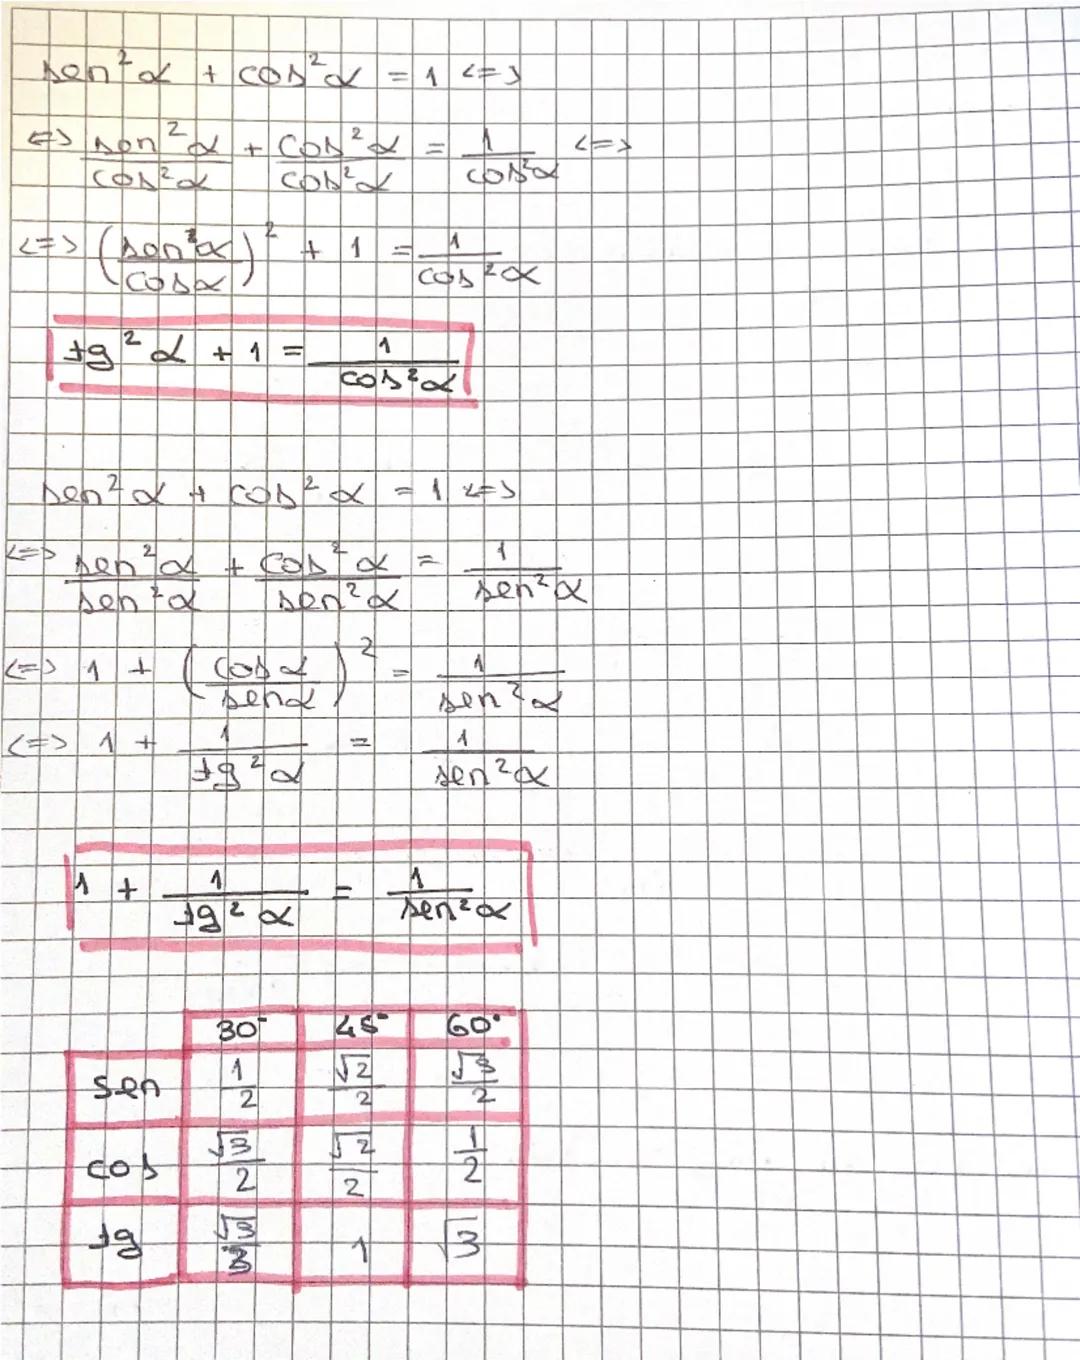 sen²α + cos²α = 1 <=>
<=> sen²α/cos²α + cos²α/cos²α = 1/cos²α <=>
<=> (sen²α/cosα)² + 1 = 1/cos²α
tg²α + 1 = 1/cos²α
sen²α + cos²α = 1 <=>
<=> sen²α/sen²α + cos²α/sen²α = 1/sen²α
<=> 1 + (cosα/senα)² = 1/sen²α
<=> 1 + 1/tg²α = 1/sen²α
1 + 1/tg²α = 1/sen²α
30° 45° 60°
sen 1/2 √2/2 √3/2
cos √3/2 √2/2 1/2
tg √3/3 1 √3